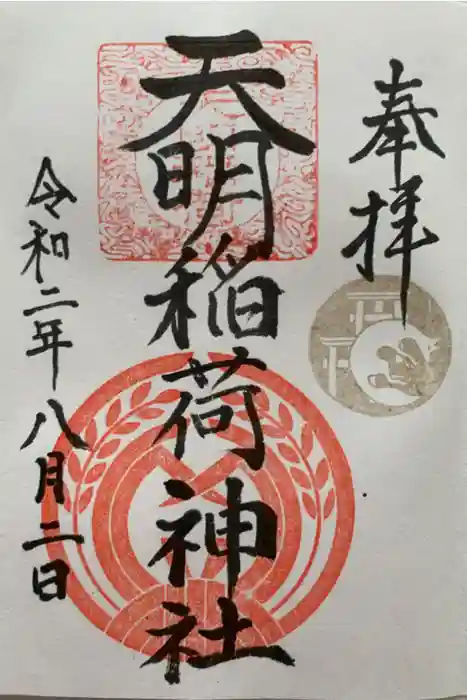 奉拝
天明稲荷神社
令和二年八月二日